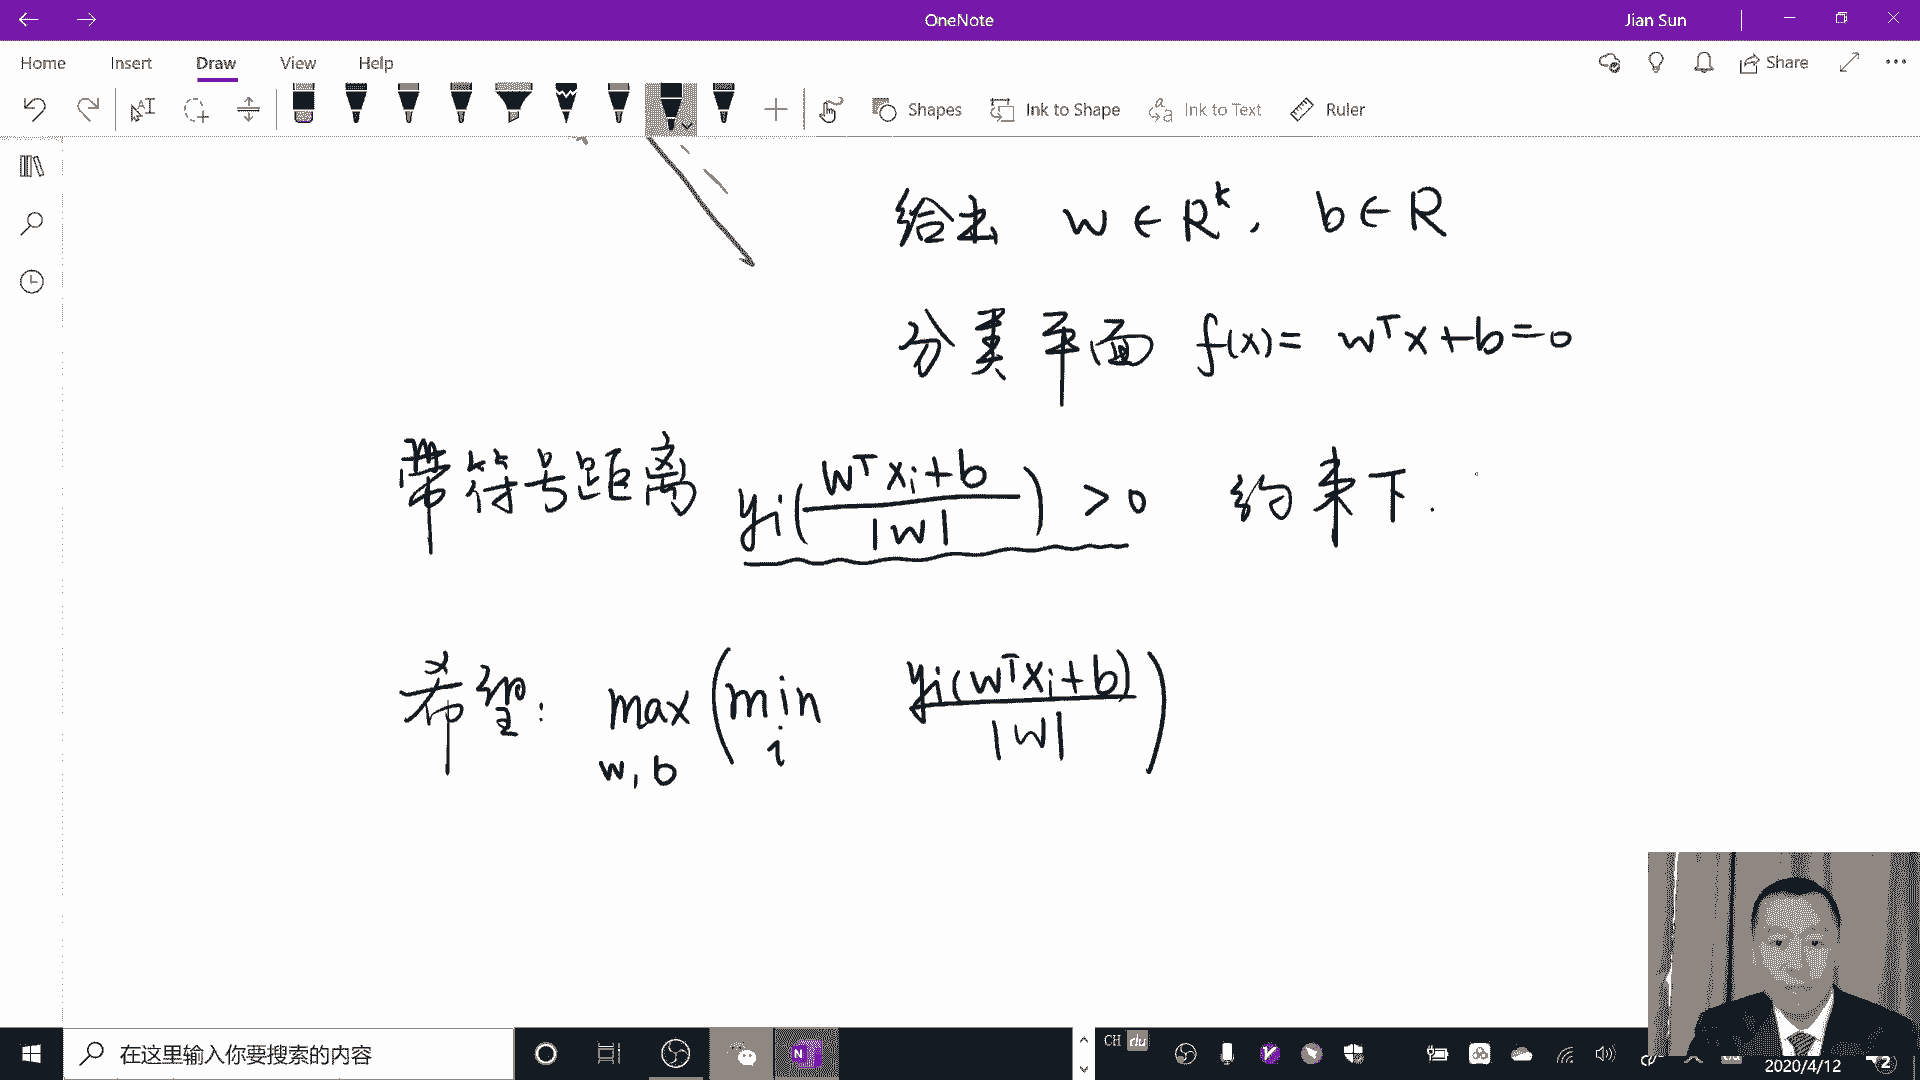 OneNote
Jian Sun
Home Insert Draw View Help
Share
Shapes Ink to Shape Ink to Text Ruler
给出 w ∈ R^k, b ∈ R
分类平面 f(x) = w^T x + b = 0
带符号距离 y_i( (w^T x_i + b) / |w| ) > 0 约束下.
希望: max_{w,b} ( min_i y_i(w^T x_i + b) / |w| )
在这里输入你要搜索的内容
CH du
2020/4/12
2